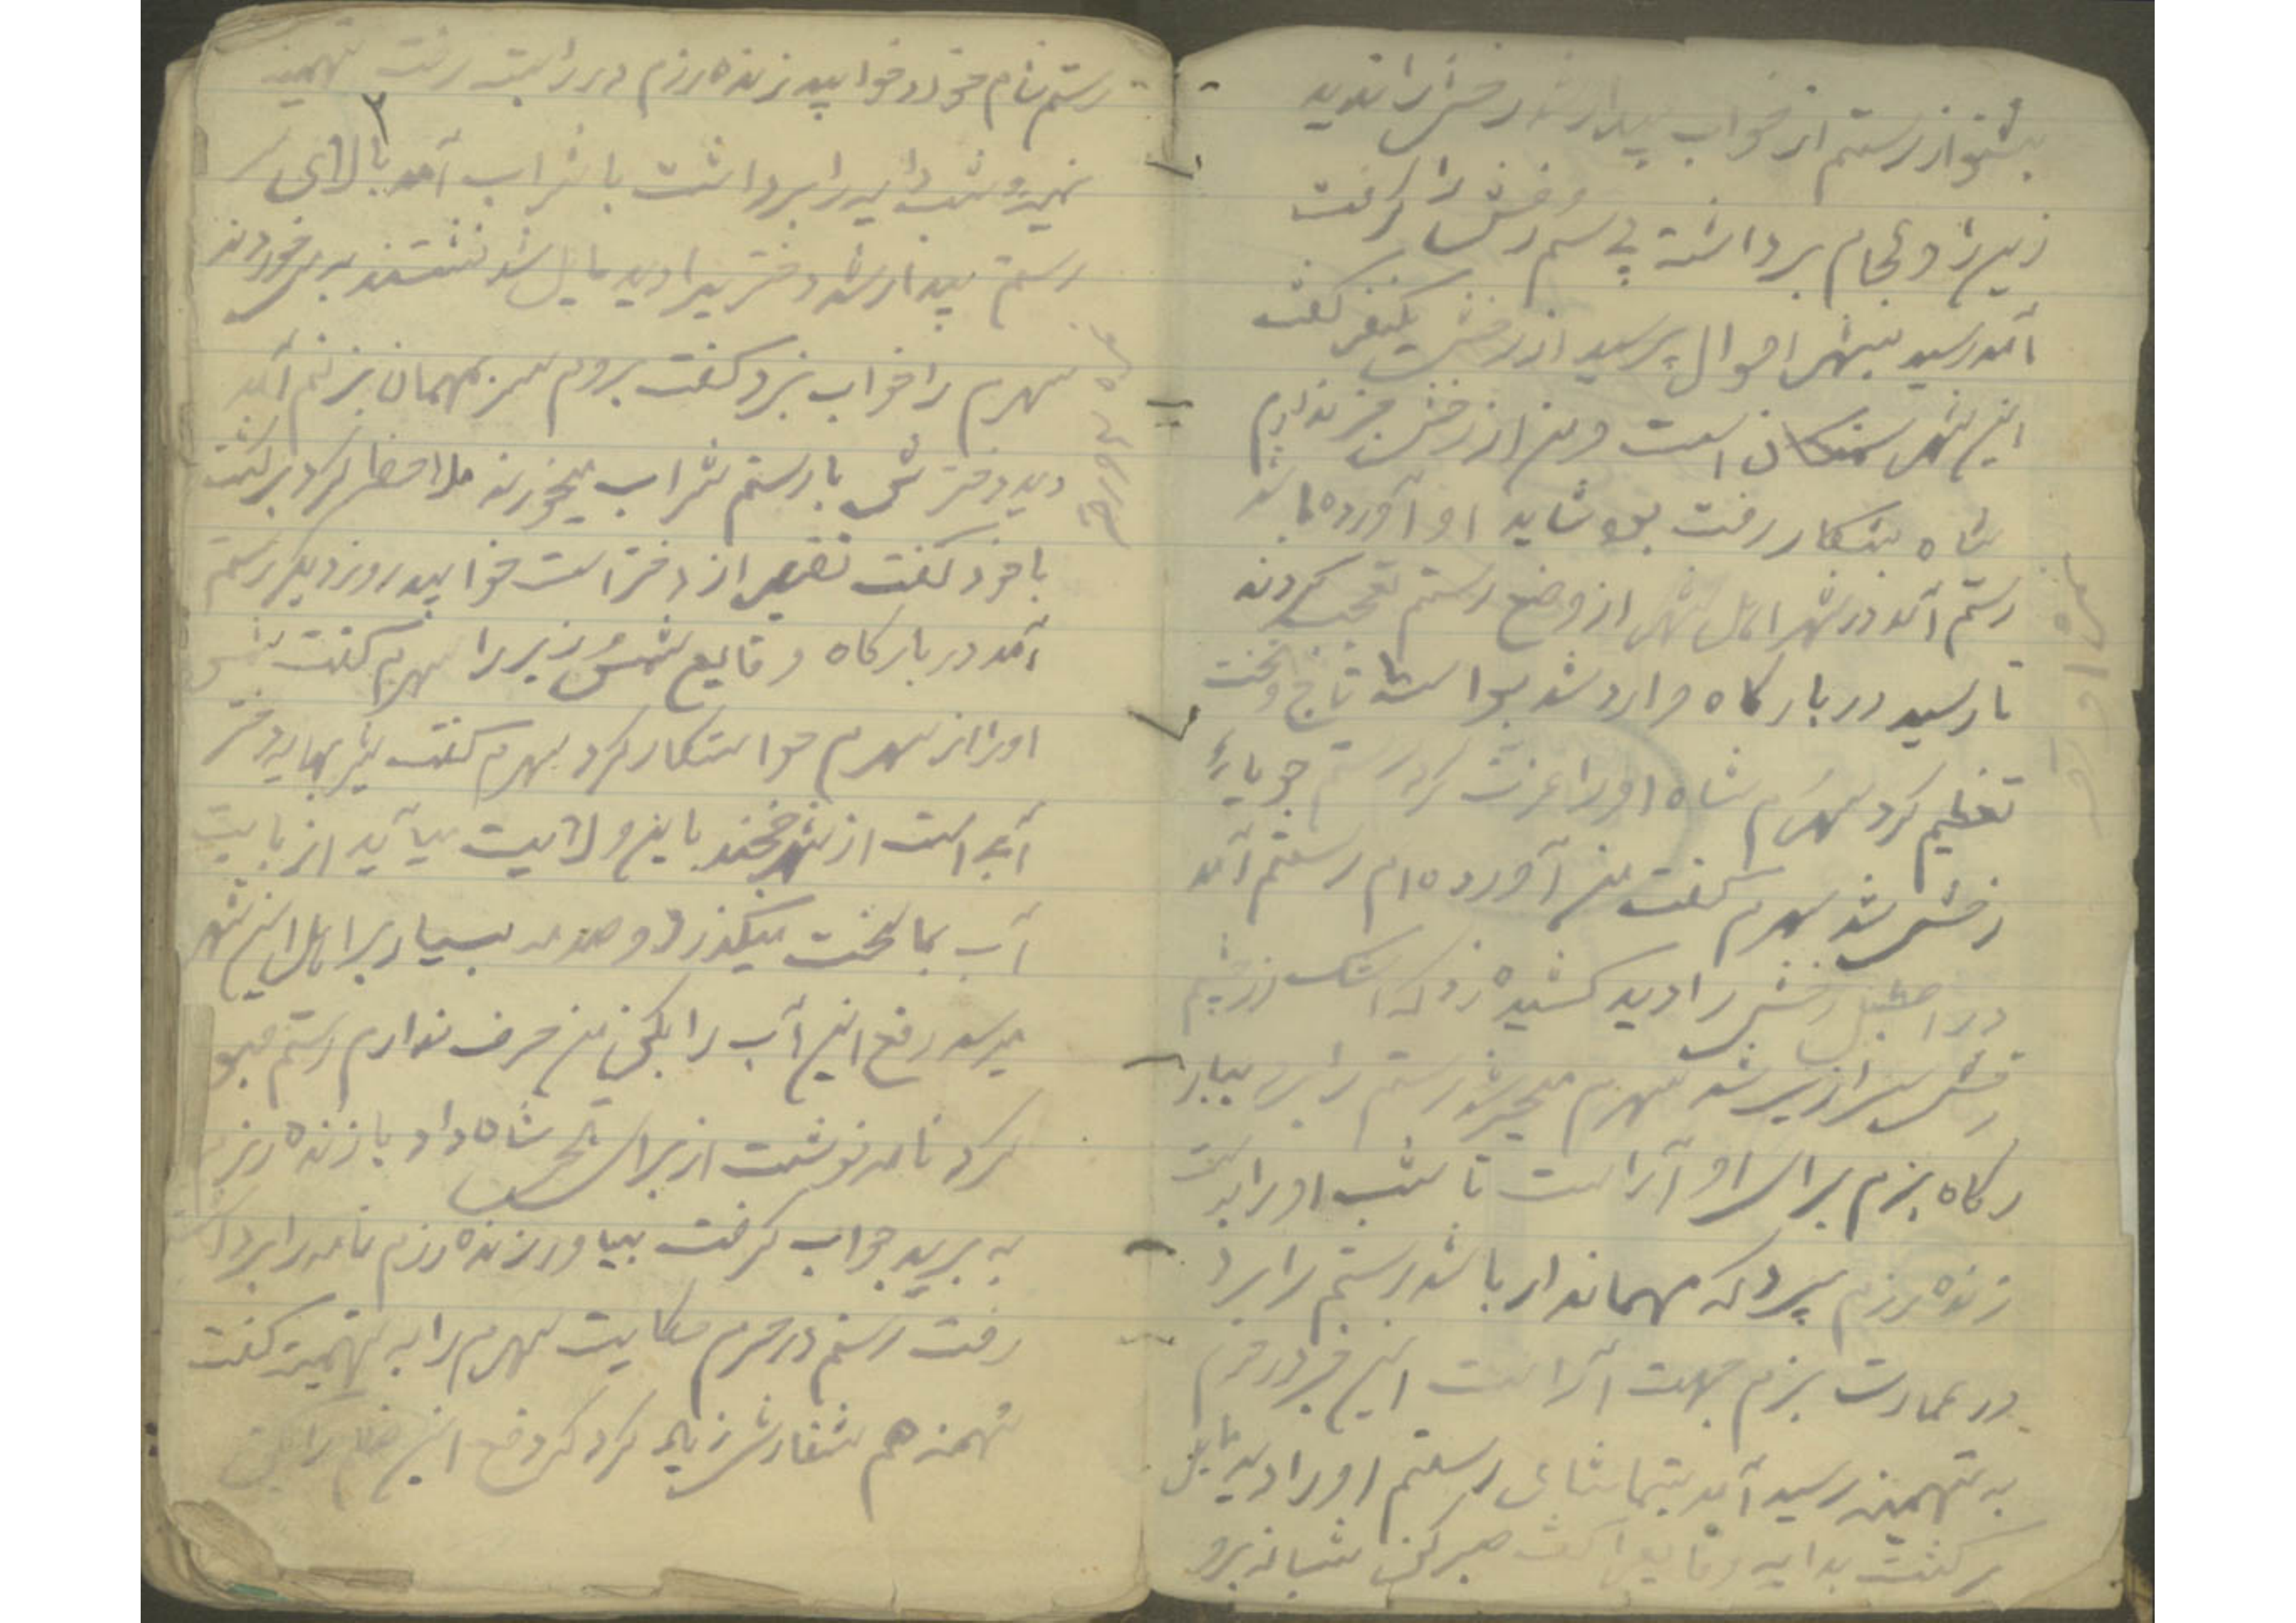 بشنو از رستم از خواب بیدار شد رخش را ندید
زین و لجام برداشته پی سم رخش را گرفت
آمد رسید بشهر احوال پرسید از رخش یکنفر گفت
این شهر سمنکان است و من از رخش خبر ندارم
شاه بشکار رفت بود شاید او آورده باشد
رستم آمد در شهر اهل شهر از وضع رستم تعجب کردند
تا رسید در بارکاه وارد شد تاج و تخت
تعظیم کرد سهرم شاه او را عزت کرد رستم جویای
رخش شد سهرم گفت من آورده ام رستم آمد
در اصطبل رخش را دید کشیده زد که اشک از چشم
رخش سرازیر شد سهرم متحیر شد رستم را ببار
رکاه بزم برای او آراست تا شب او را بدست
زنده رزم سپرد که مهماندار باشد رستم را برد
در عمارت بزم جهت آراست این خبر در حرم
به تهمینه رسید آمد بتماشای رستم او را دید مایل
برگشت بدایه وقایع را گفت صبر کن شبانه برو
رستم شام خورد خوابید زنده رزم در را بسته رفت تهمینه
نیمه شب دایه را برداشت با شراب آمد بالای سر
رستم بیدار شد دختریرا دید مایل شد نشستند به می خوردند
سهرم را خواب نبرد گفت بروم سر مهمان بزنم آمد
دید دخترش با رستم شراب میخورند ملاحظه کرد برگشت
با خود گفت تقصیر از دختر است خوابید روز دیگر رستم
آمد در بارکاه وقایع را سهرم گفت
او را از سهرم خواستکار کرد سهرم گفت شیربهای دختر
آبی است از شهر خجند باین ولایت میآید از بابت
آب بما سخت میگذرد و صدمه بسیار بر اهل این شهر
میرسد رفع این آب را بکنی من حرف ندارم رستم قبول
کرد نامه نوشت از برای شاه داد با زنده رزم
به برید جواب گرفت بیاور زنده رزم نامه را برداشت
رفت رستم در حرم حکایت سهرم را به تهمینه گفت
تهمینه هم سفارش زیاد کرد که رفع این را بکن